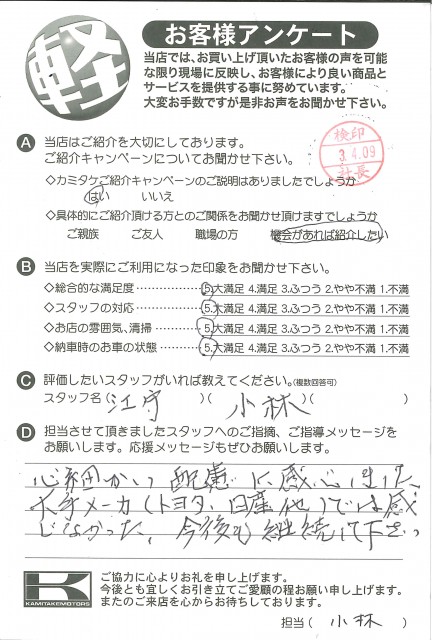 軽
お客様アンケート
当店では、お買い上げ頂いたお客様の声を可能
な限り現場に反映し、お客様により良い商品と
サービスを提供する事に努めています。
大変お手数ですが是非お声をお聞かせ下さい。
A 当店はご紹介を大切にしております。
ご紹介キャンペーンについてお聞かせ下さい。
検印
3.4.09
社長
◇カミタケご紹介キャンペーンのご説明はありましたでしょうか
はい いいえ
◇具体的にご紹介頂ける方とのご関係をお聞かせ頂けますでしょうか
ご親族 ご友人 職場の方 機会があれば紹介したい
B 当店を実際にご利用になった印象をお聞かせ下さい。
◇総合的な満足度 ……………… 5.大満足 4.満足 3.ふつう 2.やや不満 1.不満
◇スタッフの対応 ……………… 5.大満足 4.満足 3.ふつう 2.やや不満 1.不満
◇お店の雰囲気、清掃 ………… 5.大満足 4.満足 3.ふつう 2.やや不満 1.不満
◇納車時のお車の状態 ………… 5.大満足 4.満足 3.ふつう 2.やや不満 1.不満
C 評価したいスタッフがいれば教えてください。(複数回答可)
スタッフ名 ( 江守 ) ( 小林 ) ( )
D 担当させて頂きましたスタッフへのご指摘、ご指導メッセージを
お願いします。応援メッセージもぜひお願いします。
心細かい配慮に感心しました
大手メーカ(トヨタ、日産他)では感
じなかった、今後も継続して下さい
K KAMITAKEMOTORS
ご協力に心よりお礼を申し上げます。
今後とも宜しくお引き立てご愛顧の程お願い申し上げます。
またのご来店を心からお待ちしております。
担当 ( 小林 )